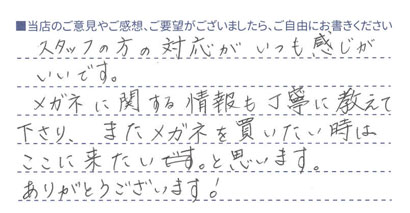 ■当店のご意見やご感想、ご要望がございましたら、ご自由にお書きください
スタッフの方の対応がいつも感じが
いいです。
メガネに関する情報も丁寧に教えて
下さり、またメガネを買いたい時は
ここに来たいです。と思います。
ありがとうございます!